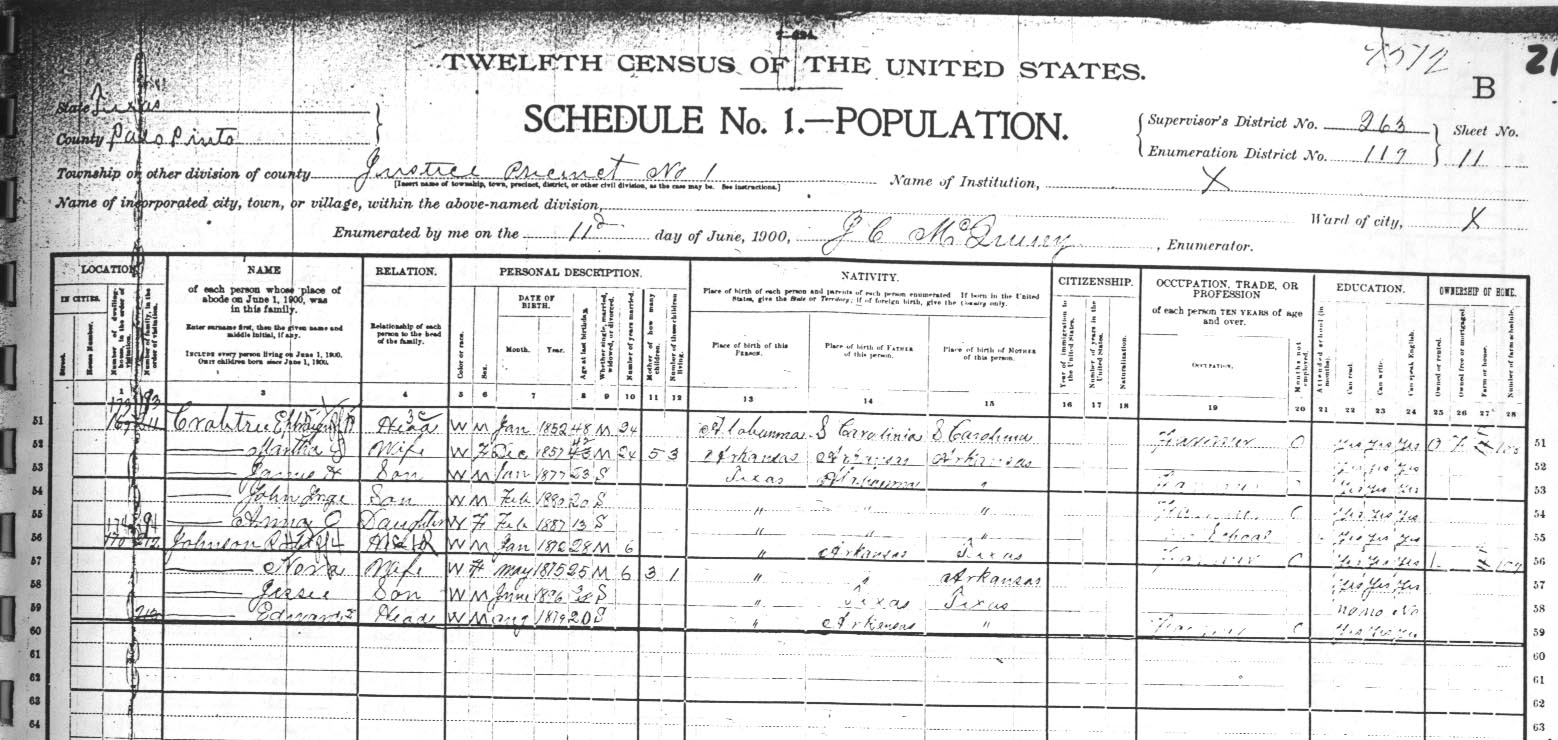 TWELFTH CENSUS OF THE UNITED STATES.
B
State Texas
County Palo Pinto
SCHEDULE No. 1.—POPULATION.
Supervisor's District No. 263
Enumeration District No. 119
Sheet No. 11
Township or other division of county Justice Precinct No 1
[Insert name of township, town, precinct, district, or other civil division, as the case may be. See instructions.]
Name of Institution, X
Name of incorporated city, town, or village, within the above-named division,
Ward of city, X
Enumerated by me on the 11 day of June, 1900, J C , Enumerator.
LOCATION. NAME RELATION. PERSONAL DESCRIPTION. NATIVITY. CITIZENSHIP. OCCUPATION, TRADE, OR PROFESSION EDUCATION. OWNERSHIP OF HOME.
IN CITIES.
Street.
House Number.
Number of dwelling-house, in the order of visitation.
Number of family, in the order of visitation.
of each person whose place of abode on June 1, 1900, was in this family.
Enter surname first, then the given name and middle initial, if any.
INCLUDE every person living on June 1, 1900.
OMIT children born since June 1, 1900.
Relationship of each person to the head of the family.
Color or race.
Sex.
DATE OF BIRTH.
Month. Year.
Age at last birthday.
Whether single, married, widowed, or divorced.
Number of years married.
Mother of how many children.
Number of these children living.
Place of birth of each person and parents of each person enumerated. If born in the United States, give the State or Territory; if of foreign birth, give the Country only.
Place of birth of this PERSON.
Place of birth of FATHER of this person.
Place of birth of MOTHER of this person.
Year of immigration to the United States.
Number of years in the United States.
Naturalization.
of each person TEN YEARS of age and over.
OCCUPATION.
Months not employed.
Attended school (in months).
Can read.
Can write.
Can speak English.
Owned or rented.
Owned free or mortgaged.
Farm or house.
Number of farm schedule.
3 4 5 6 7 8 9 10 11 12 13 14 15 16 17 18 19 20 21 22 23 24 25 26 27 28
51 Crabtree Head W M Jan 1852 48 M 24 Alabama S Carolina S Carolina Farmer 0 Yes Yes Yes O 51
52 Martha J Wife W F Dec 1857 M 24 5 3 Arkansas Arkansas Arkansas Yes Yes Yes 52
53 Son W M Jan 1877 23 S Texas Alabama " Yes Yes Yes 53
54 John Son W M Feb 1880 20 S " " " Yes Yes Yes 54
55 Anna C Daughter W F Feb 1887 13 S " " " School Yes Yes Yes 55
56 Johnson W M Jan 28 M 6 " Arkansas Texas Farmer Yes Yes Yes 56
57 Nora Wife W F May 1875 25 M 6 3 1 " " Arkansas Yes Yes Yes 57
58 Jessie Son W M June 1896 S " Texas Texas no no No 58
59 Head W M Aug 1879 20 S " Arkansas " Yes Yes Yes 59
60 60
61 61
62 62
63 63
64